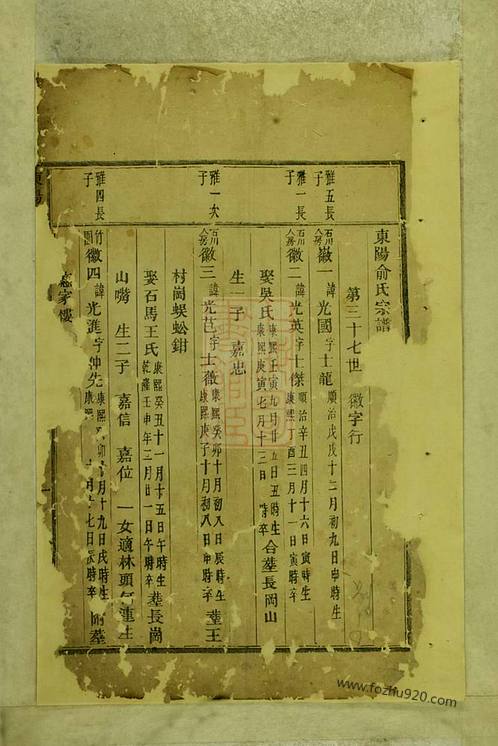 東陽俞氏宗譜
第三十七世 徽字行
雅五長子
石川八房 徽一 諱光國字士龍 順治戊戌十二月初九日申時生
雅一長子
石川八房 徽二 諱光英字士傑 順治辛丑四月十六日寅時生 康熙丁酉三月十一日寅時卒
娶吳氏 康熙壬寅九月廿五日丑時生 康熙庚寅七月十三日 時卒 合葬長岡山
生一子 嘉忠
雅一次子
石川八房 徽三 諱光芑字士徽 康熙癸卯十月初八日辰時生 康熙庚子十月初八日申時卒 葬王
村崗蜈蚣鉗
娶石馬王氏 康熙癸丑十一月十五日午時生 乾隆壬申年三月廿一日午時卒 葬長崗
山嘴 生二子 嘉信 嘉位 一女適林頭 連生
雅四長子
竹園 徽四 諱光進字仲先 康熙 卯 月十九日戌時生 康熙 月十七日辰時卒 附葬
家樓
www.fozhu920.com